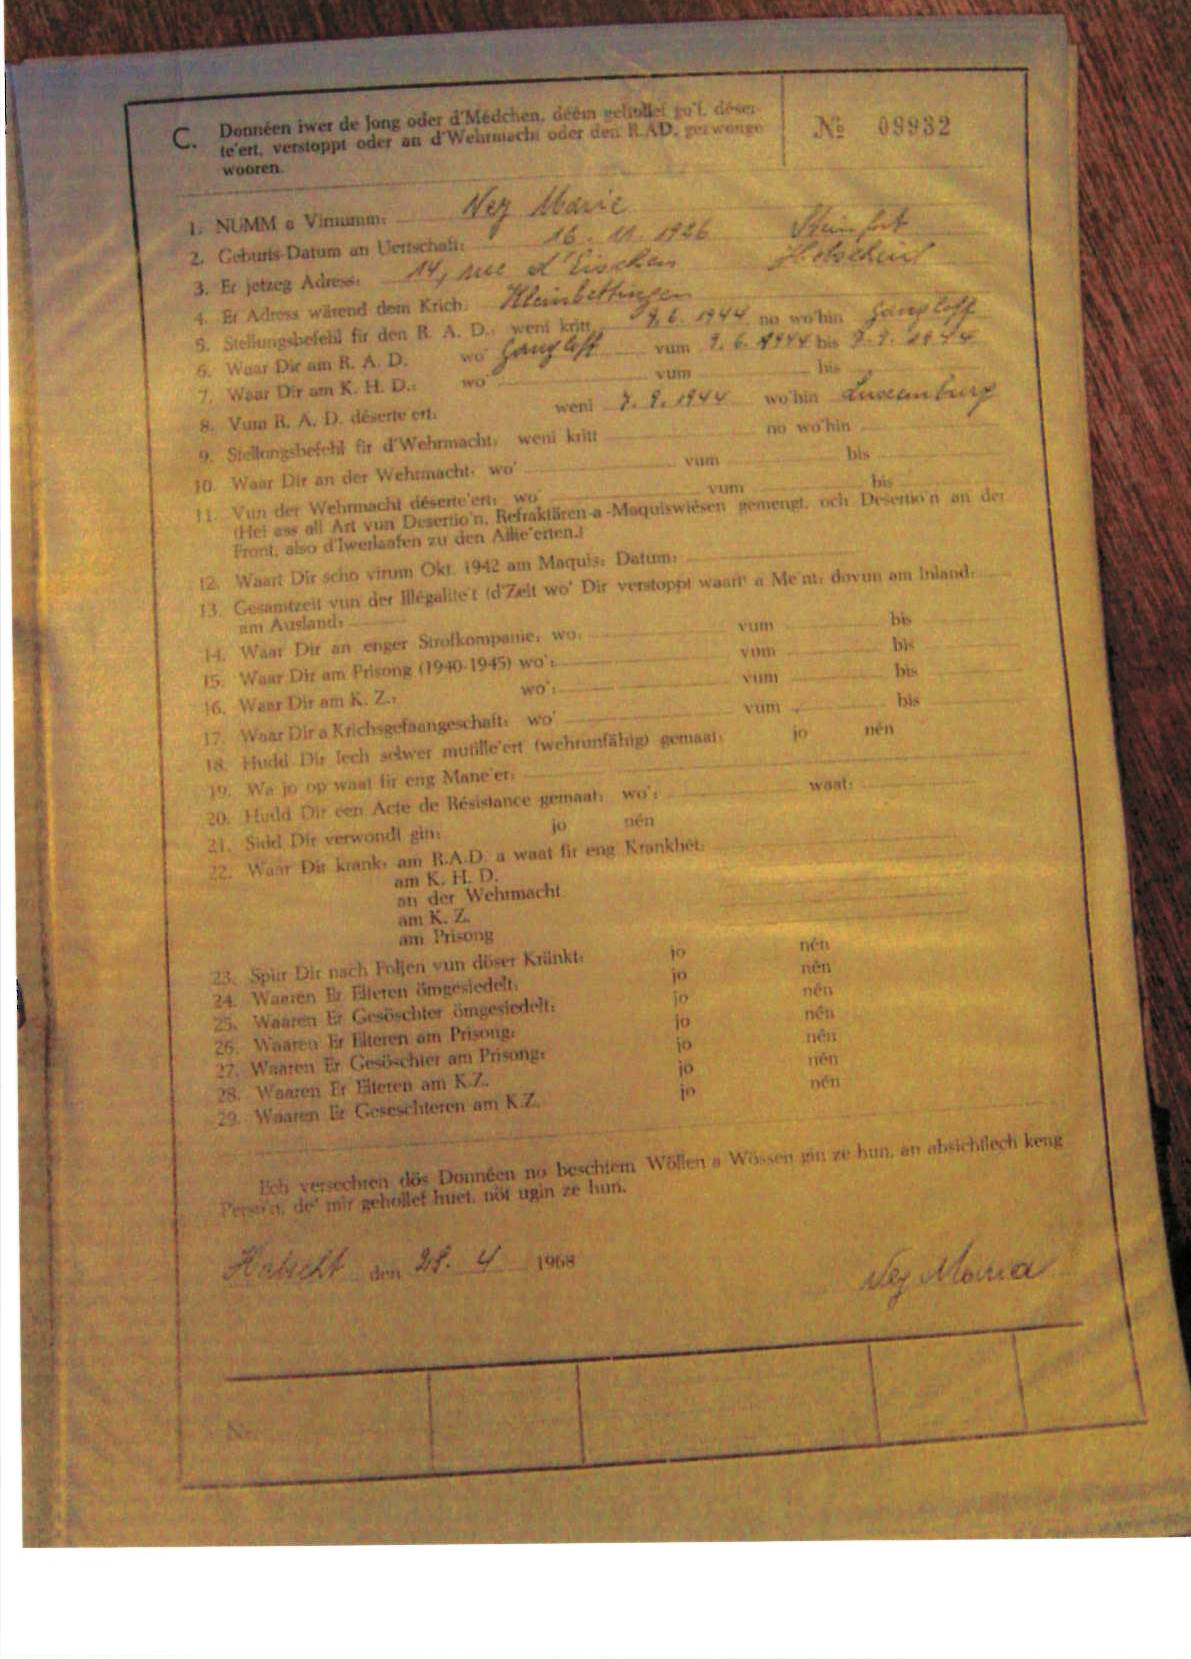 C. Donnéen iwer de Jong oder d'Médchen, déém gehollef go'f, déser-
te'ert, verstoppt oder an d'Wehrmacht oder den R.AD. gezwonge
wooren.
№ 09932
1. NUMM a Virnumm: Ney Marie
2. Geburts-Datum an Uertschaft: 16. 11. 1926 Steinfort
3. Er jetzeg Adress: 14, rue d'Eischen Hobscheid
4. Er Adress wärend dem Krich: Kleinbettingen
5. Stellungsbefehl fir den R. A. D.: weni kritt 9.6.1944 no wo'hin Gangloff
6. Waar Dir am R. A. D. wo' Gangloff vum 9.6.1944 bis 7.9.1944
7. Waar Dir am K. H. D.: wo' vum bis
8. Vum R. A. D. déserte'ert: weni 7.9.1944 wo'hin Luxemburg
9. Stellungsbefehl fir d'Wehrmacht: weni kritt no wo'hin
10. Waar Dir an der Wehrmacht: wo' vum bis
11. Vun der Wehrmacht déserte'ert: wo' vum bis
(Hei ass all Art vun Desertio'n, Refraktären-a-Maquiswiésen gemengt, och Desertio'n an der
Front, also d'Iwerlaafen zu den Allie'erten.)
12. Waart Dir scho virum Okt. 1942 am Maquis: Datum:
13. Gesamtzeit vun der Illégalite't (d'Zeit wo' Dir verstoppt waart) a Me'nt: dovun am Inland:
am Ausland:
14. Waar Dir an enger Strofkompanie: wo: vum bis
15. Waar Dir am Prisong (1940-1945) wo': vum bis
16. Waar Dir am K. Z.: wo': vum bis
17. Waar Dir a Krichsgefaangeschaft: wo' vum bis
18. Hudd Dir Iech selwer mutille'ert (wehrunfähig) gemaat: jo nén
19. We jo op waat fir eng Mane'er:
20. Hudd Dir een Acte de Résistance gemaat: wo': waat:
21. Sidd Dir verwondt gin: jo nén
22. Waar Dir krank: am R.A.D. a waat fir eng Krankhét:
am K. H. D.
an der Wehrmacht
am K. Z.
am Prisong
23. Spirt Dir nach Foljen vun döser Kränkt: jo nén
24. Waaren Er Elteren ömgesiedelt: jo nén
25. Waaren Er Gesöschter ömgesiedelt: jo nén
26. Waaren Er Elteren am Prisong: jo nén
27. Waaren Er Gesöschter am Prisong: jo nén
28. Waaren Er Elteren am K.Z. jo nén
29. Waaren Er Geseschteren am K.Z. jo nén
Ech versechren dös Donnéen no beschtem Wöllen a Wössen gin ze hun, an absichtlech keng
Perso'n, de' mir gehollef huet, nöt ugin ze hun.
Habscht den 28. 4 1968
Ney Maria
Nr.